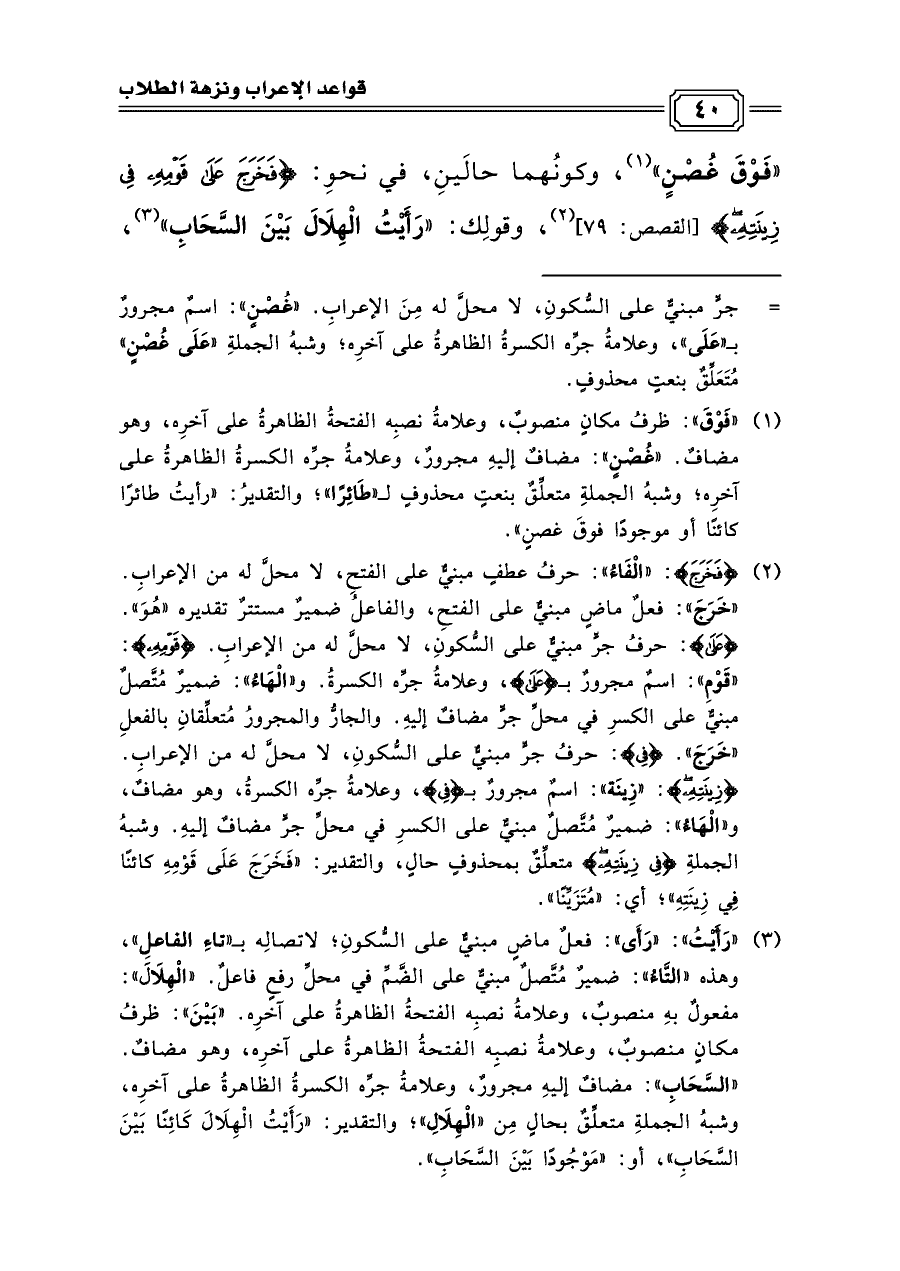 قواعد الإعراب ونزهة الطلاب
٤٠
«فَوْقَ غُصْنٍ»(١)، وكونُهما حالَينِ، في نحوِ: ﴿فَخَرَجَ عَلَىٰ قَوْمِهِۦ فِي
زِينَتِهِۦۖ﴾ [القصص: ٧٩](٢)، وقولِك: «رَأَيْتُ الْهِلَالَ بَيْنَ السَّحَابِ»(٣)،
= جرٍّ مبنيٌّ على السُّكونِ، لا محلَّ له مِنَ الإعرابِ. «غُصْنٍ»: اسمٌ مجرورٌ
بـ«عَلَى»، وعلامةُ جرِّه الكسرةُ الظاهرةُ على آخرِه؛ وشبهُ الجملةِ «عَلَى غُصْنٍ»
مُتَعَلِّقٌ بنعتٍ محذوفٍ.
(١) «فَوْقَ»: ظرفُ مكانٍ منصوبٌ، وعلامةُ نصبِه الفتحةُ الظاهرةُ على آخرِه، وهو
مضافٌ. «غُصْنٍ»: مضافٌ إليهِ مجرورٌ، وعلامةُ جرِّه الكسرةُ الظاهرةُ على
آخرِه؛ وشبهُ الجملةِ متعلِّقٌ بنعتٍ محذوفٍ لـ«طَائِرًا»؛ والتقديرُ: «رأيتُ طائرًا
كائنًا أو موجودًا فوقَ غصنٍ».
(٢) ﴿فَخَرَجَ﴾: «الْفَاءُ»: حرفُ عطفٍ مبنيٌّ على الفتحِ، لا محلَّ له من الإعرابِ.
«خَرَجَ»: فعلٌ ماضٍ مبنيٌّ على الفتحِ، والفاعلُ ضميرٌ مستترٌ تقديره «هُوَ».
﴿عَلَىٰ﴾: حرفُ جرٍّ مبنيٌّ على السُّكونِ، لا محلَّ له من الإعرابِ. ﴿قَوْمِهِۦ﴾:
«قَوْمِ»: اسمٌ مجرورٌ بـ﴿عَلَىٰ﴾، وعلامةُ جرِّه الكسرةُ. و«الْهَاءُ»: ضميرٌ مُتَّصلٌ
مبنيٌّ على الكسرِ في محلِّ جرٍّ مضافٌ إليهِ. والجارُّ والمجرورُ مُتعلِّقانِ بالفعلِ
«خَرَجَ». ﴿فِي﴾: حرفُ جرٍّ مبنيٌّ على السُّكونِ، لا محلَّ له من الإعرابِ.
﴿زِينَتِهِۦۖ﴾: «زِينَة»: اسمٌ مجرورٌ بـ﴿فِي﴾، وعلامةُ جرِّه الكسرةُ، وهو مضافٌ،
و«الْهَاءُ»: ضميرٌ مُتَّصلٌ مبنيٌّ على الكسرِ في محلِّ جرٍّ مضافٌ إليهِ. وشبهُ
الجملةِ ﴿فِي زِينَتِهِۦۖ﴾ متعلِّقٌ بمحذوفٍ حالٍ، والتقدير: «فَخَرَجَ عَلَى قَوْمِهِ كائنًا
فِي زِينَتِهِ»؛ أي: «مُتَزَيِّنًا».
(٣) «رَأَيْتُ»: «رَأَى»: فعلٌ ماضٍ مبنيٌّ على السُّكونِ؛ لاتصالِه بـ«تاءِ الفاعلِ»،
وهذه «التَّاءُ»: ضميرٌ مُتَّصلٌ مبنيٌّ على الضَّمِّ في محلِّ رفعٍ فاعلٌ. «الْهِلَالَ»:
مفعولٌ بهِ منصوبٌ، وعلامةُ نصبِه الفتحةُ الظاهرةُ على آخرِه. «بَيْنَ»: ظرفُ
مكانٍ منصوبٌ، وعلامةُ نصبِه الفتحةُ الظاهرةُ على آخرِه، وهو مضافٌ.
«السَّحَابِ»: مضافٌ إليهِ مجرورٌ، وعلامةُ جرِّه الكسرةُ الظاهرةُ على آخرِه،
وشبهُ الجملةِ متعلِّقٌ بحالٍ مِن «الْهِلَالِ»؛ والتقدير: «رَأَيْتُ الْهِلَالَ كَائِنًا بَيْنَ
السَّحَابِ»، أو: «مَوْجُودًا بَيْنَ السَّحَابِ».